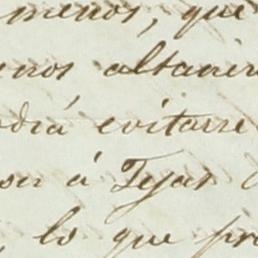 menos, que
enos altaner
dria evitarse
son á Tejas
, lo que pro